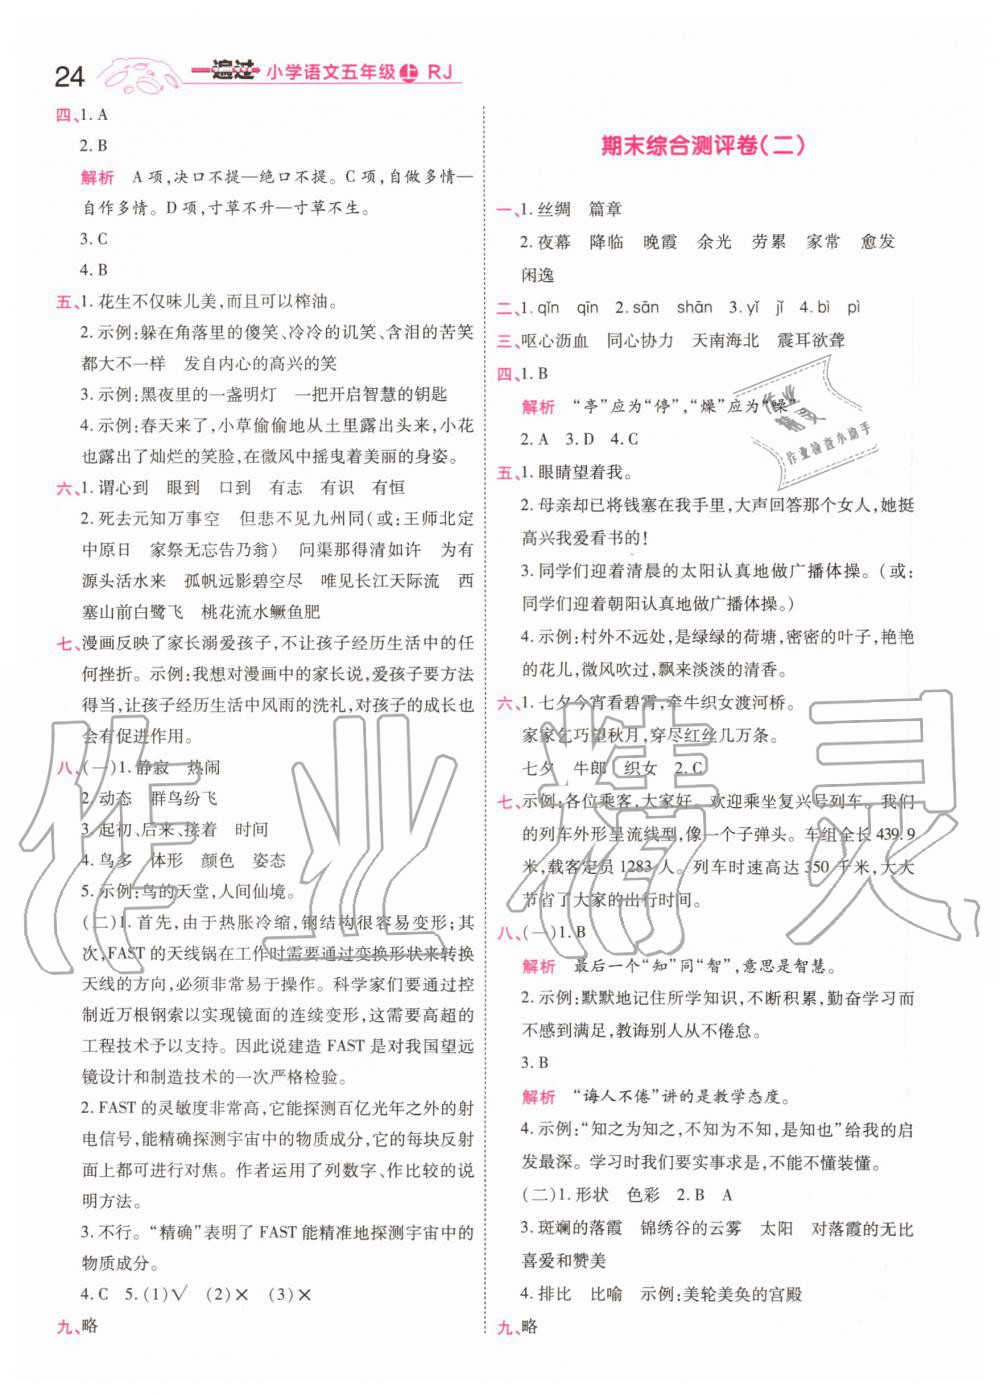 24 一遍过 小学语文五年级上 RJ
四、1. A
2. B
解析 A 项,决口不提—绝口不提。C 项,自做多情—
自作多情。D 项,寸草不升—寸草不生。
3. C
4. B
五、1. 花生不仅味儿美,而且可以榨油。
2. 示例:躲在角落里的傻笑、冷冷的讥笑、含泪的苦笑
都大不一样 发自内心的高兴的笑
3. 示例:黑夜里的一盏明灯 一把开启智慧的钥匙
4. 示例:春天来了,小草偷偷地从土里露出头来,小花
也露出了灿烂的笑脸,在微风中摇曳着美丽的身姿。
六、1. 谓心到 眼到 口到 有志 有识 有恒
2. 死去元知万事空 但悲不见九州同(或:王师北定
中原日 家祭无忘告乃翁) 问渠那得清如许 为有
源头活水来 孤帆远影碧空尽 唯见长江天际流 西
塞山前白鹭飞 桃花流水鳜鱼肥
七、漫画反映了家长溺爱孩子,不让孩子经历生活中的任
何挫折。示例:我想对漫画中的家长说,爱孩子要方法
得当,让孩子经历生活中风雨的洗礼,对孩子的成长也
会有促进作用。
八、(一)1. 静寂 热闹
2. 动态 群鸟纷飞
3. 起初、后来、接着 时间
4. 鸟多 体形 颜色 姿态
5. 示例:鸟的天堂,人间仙境。
(二)1. 首先,由于热胀冷缩,钢结构很容易变形;其
次,FAST 的天线锅在工作时需要通过变换形状来转换
天线的方向,必须非常易于操作。科学家们要通过控
制近万根钢索以实现镜面的连续变形,这需要高超的
工程技术予以支持。因此说建造 FAST 是对我国望远
镜设计和制造技术的一次严格检验。
2. FAST 的灵敏度非常高,它能探测百亿光年之外的射
电信号,能精确探测宇宙中的物质成分,它的每块反射
面上都可进行对焦。作者运用了列数字、作比较的说
明方法。
3. 不行。“精确”表明了 FAST 能精准地探测宇宙中的
物质成分。
4. C 5. (1)√ (2)× (3)×
九、略
期末综合测评卷(二)
一、1. 丝绸 篇章
2. 夜幕 降临 晚霞 余光 劳累 家常 愈发
闲逸
二、1. qǐn qīn 2. sān shān 3. yǐ jǐ 4. bì pì
三、呕心沥血 同心协力 天南海北 震耳欲聋
四、1. B
解析 “亭”应为“停”,“燥”应为“噪”
2. A 3. D 4. C
五、1. 眼睛望着我。
2. 母亲却已将钱塞在我手里,大声回答那个女人,她挺
高兴我爱看书的!
3. 同学们迎着清晨的太阳认真地做广播体操。(或:
同学们迎着朝阳认真地做广播体操。)
4. 示例:村外不远处,是绿绿的荷塘,密密的叶子,艳艳
的花儿,微风吹过,飘来淡淡的清香。
六、1. 七夕今宵看碧霄,牵牛织女渡河桥。
家家乞巧望秋月,穿尽红丝几万条。
七夕 牛郎 织女 2. C
七、示例:各位乘客,大家好。欢迎乘坐复兴号列车。我们
的列车外形呈流线型,像一个子弹头。车组全长 439.9
米,载客定员 1283 人。列车时速高达 350 千米,大大
节省了大家的出行时间。
八、(一)1. B
解析 最后一个“知”同“智”,意思是智慧。
2. 示例:默默地记住所学知识,不断积累,勤奋学习而
不感到满足,教诲别人从不倦怠。
3. B
解析 “诲人不倦”讲的是教学态度。
4. 示例:“知之为知之,不知为不知,是知也”给我的启
发最深。学习时我们要实事求是,不能不懂装懂。
(二)1. 形状 色彩 2. B A
3. 斑斓的落霞 锦绣谷的云雾 太阳 对落霞的无比
喜爱和赞美
4. 排比 比喻 示例:美轮美奂的宫殿
九、略
作业精灵
作业检查小助手
作业精灵